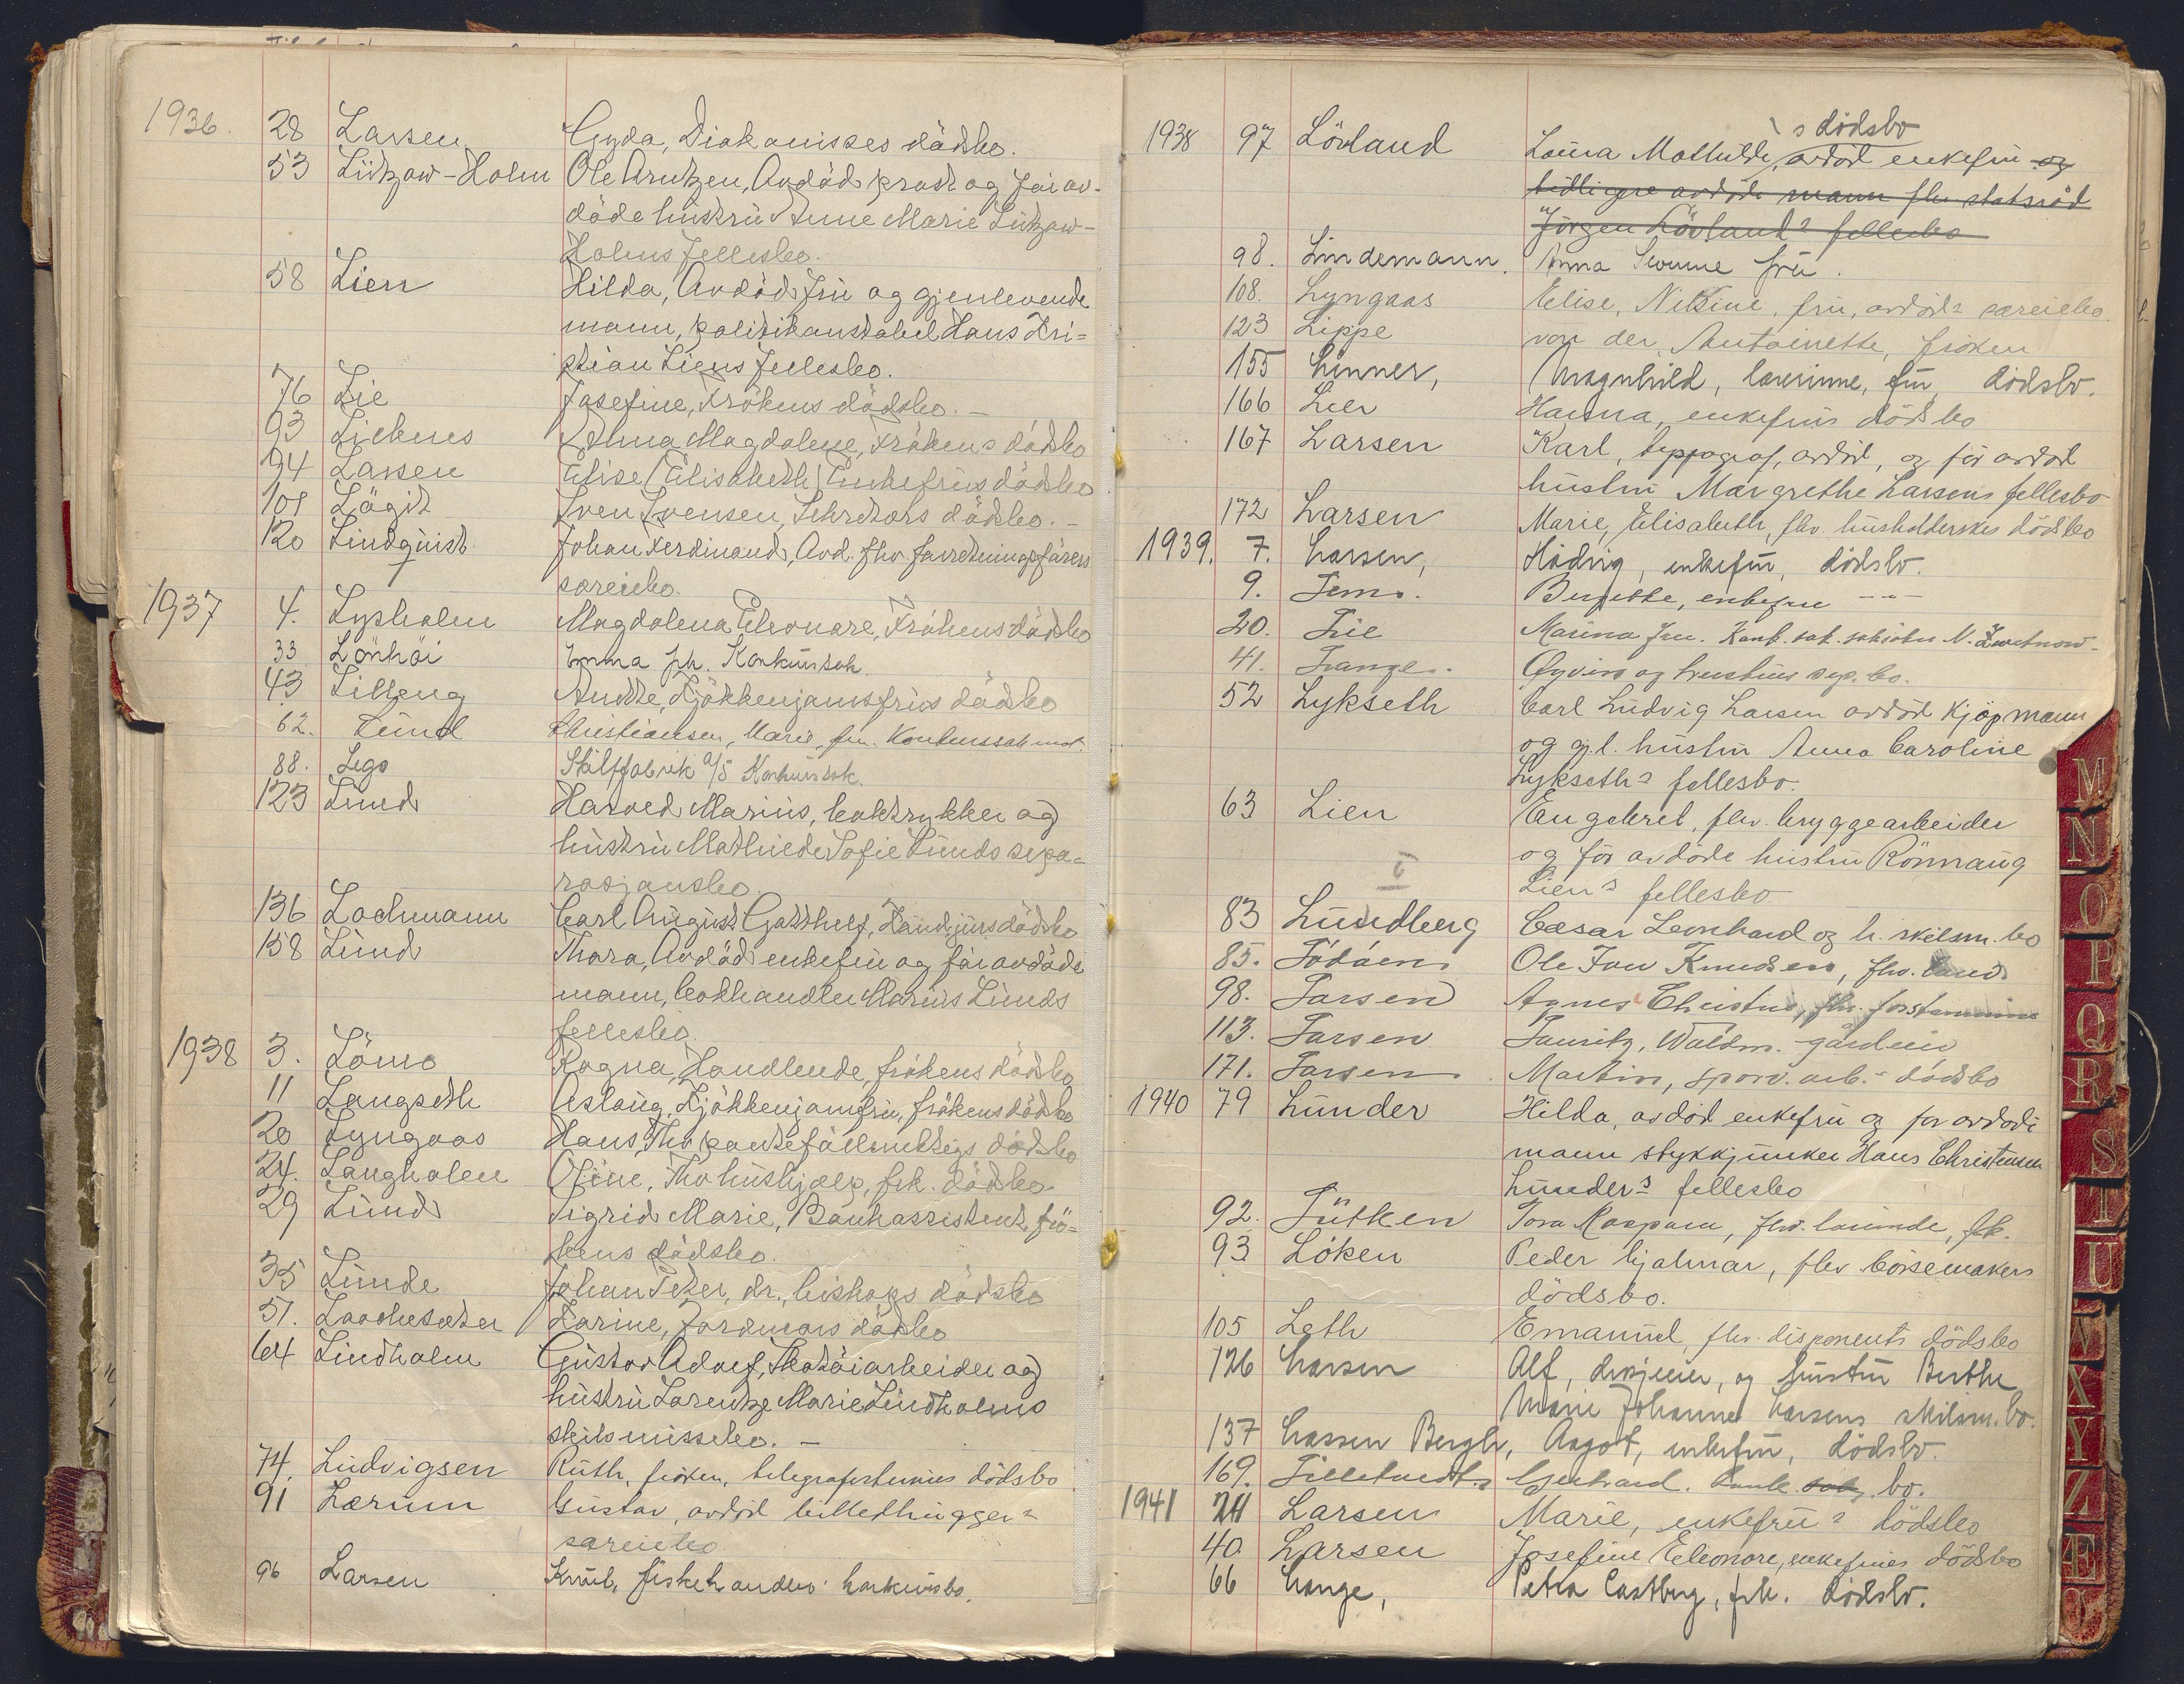 1936. 28 Larsen Gyda, Diakonisses dödsbo.
53 Lützow-Holm Ole Arntzen, Avdöd prost og för av-
döde hustru Anne Marie Lützow-
Holms fellesbo.
58 Lien Hilda, Avdöd fru og gjenlevende
mann, politikonstabel Hans Kri=
stian Liens fellesbo.
76 Lie Josefine, Frökens dödsbo. -
93 Lieknes Alma Magdalene, Frökens dödsbo
94 Larsen Elise (Elisabeth) Enkefrus dödsbo
101 Lögit Sven Svensen, Sekretærs dödsbo. -
120 Lindquist. Johan Ferdinand, Avd. fhv. forretningsförers
særeiebo.
1937 4. Lysholm Magdalena Eleonore, Frökens dödsbo
33 Lönhöi Emma frk. Konkurssak.
43 Lilleng Anette, Kjökkenjomfrus dödsbo
62. Lund Christiansen, Marie, fru. Konkurssak mot.
88. Lego Skiltfabrik a/s Konkurssak.
123 Lund Harald Marius, boktrykker og
hustru Mathilde Sofie Lunds sepa=
rasjonsbo.
136 Lochmann Carl August Gotthelf, Kand. jurs dödsbo
158 Lund Thora, Avdöd enkefru og för avdöde
mann, bokhandler Marius Lunds
fellesbo.
1938 3. Lömo Ragna, Handlende, frökens dödsbo
11 Langseth Aslaug, Kjökkenjomfru, frökens dödsbo
20 Lyngaas Hans, Fhv. pantefullmektigs dödsbo
24. Langholm Oline, Fhv. hushjælp, frk. dödsbo.
29 Lund Sigrid Marie, Bankassistent, frö=
kens dödsbo.
35 Lunde Johan Peter, dr., biskops dödsbo
51. Karine, Jordmors dödsbo
64 Lindholm Gustav Adolf, Skotöiarbeider og
hustru Lorentze Marie Lindholms
skilsmissebo. -
74. Ludvigsen Ruth, fröken, telegrafistinnes dödsbo
91 Lærum Gustav, avdöd billedhugger's
særeiebo
96 Larsen Knut, fiskehandler konkursbo.
1938 97 Lövland Laura Mathilde, avdöd enkefru's dödsbo og
tidligere avdöde mann fhv. statsråd
Jörgen Lövland's fellesbo
98. Lindemann. Anna fru.
108. Lyngaas Elise, Nilsine, fru, avdöd's særeiebo.
123 Lippe von der, Antoinette, fröken
155 Linner, Magnhild, lærerinne, fru, dödsbo.
166 Lier Hanna, enkefrus dödsbo
167 Larsen Karl, typograf, avdöd, og för avdöd
hustru Margrethe Larsens fellesbo
172 Larsen Marie, Elisabeth, fhv. husholderskes dödsbo
1939. 7. Larsen, Hedvig, enkefru, dödsbo.
9. Lem. Bergitte, enkefru - " -
20. Lie Marina fru. Konk. sak. N.
41. Lange. Øyvind og hustrus sep. bo.
52 Lykseth Carl Ludvig Larsen avdöd Kjöpmann
og gj.l. hustru Anna Caroline
Lykseth's fellesbo.
63 Lien Engebret, fhv. bryggearbeider
og för avdöde hustru Rönnaug
Lien's fellesbo
83 Lundberg Cæsar Leonhard og h. skilsm. bo
85. Lödöen Ole Jon Knudsen, fhv.
98. Larsen Agnes Christine, fhv.
113. Larsen Lauritz, Waldm. gårdeier
171. Larsen Martin, sporv. arb.s dödsbo
1940 79 Lunder Hilda, avdöd enkefru og for avdöde
mann stykkjunker Hans Christensen
Lunder's fellesbo
92. Lütken Tora fhv. lærerinde, frk.
93 Löken Peder Hjalmar, fhv börsemakers
dödsbo.
105 Leth Emanuel, fhv. disponents dödsbo
126 Larsen Alf, og hustru Berthe
Marie Johanne Larsens skilsm.bo.
137 Larssen Bergh, Aagot, enkefru, dödsbo.
169. Gerhard. Konk. sak. bo.
1941 24 Larsen Marie, enkefru's dödsbo
40. Larsen Josefine Eleonore, enkefrues dödsbo
66 Lange, Petra Castberg, frk. dödsbo.
M
N
O
P
Q
R
S
T
U
V
X
Y
Z
Æ
Ø